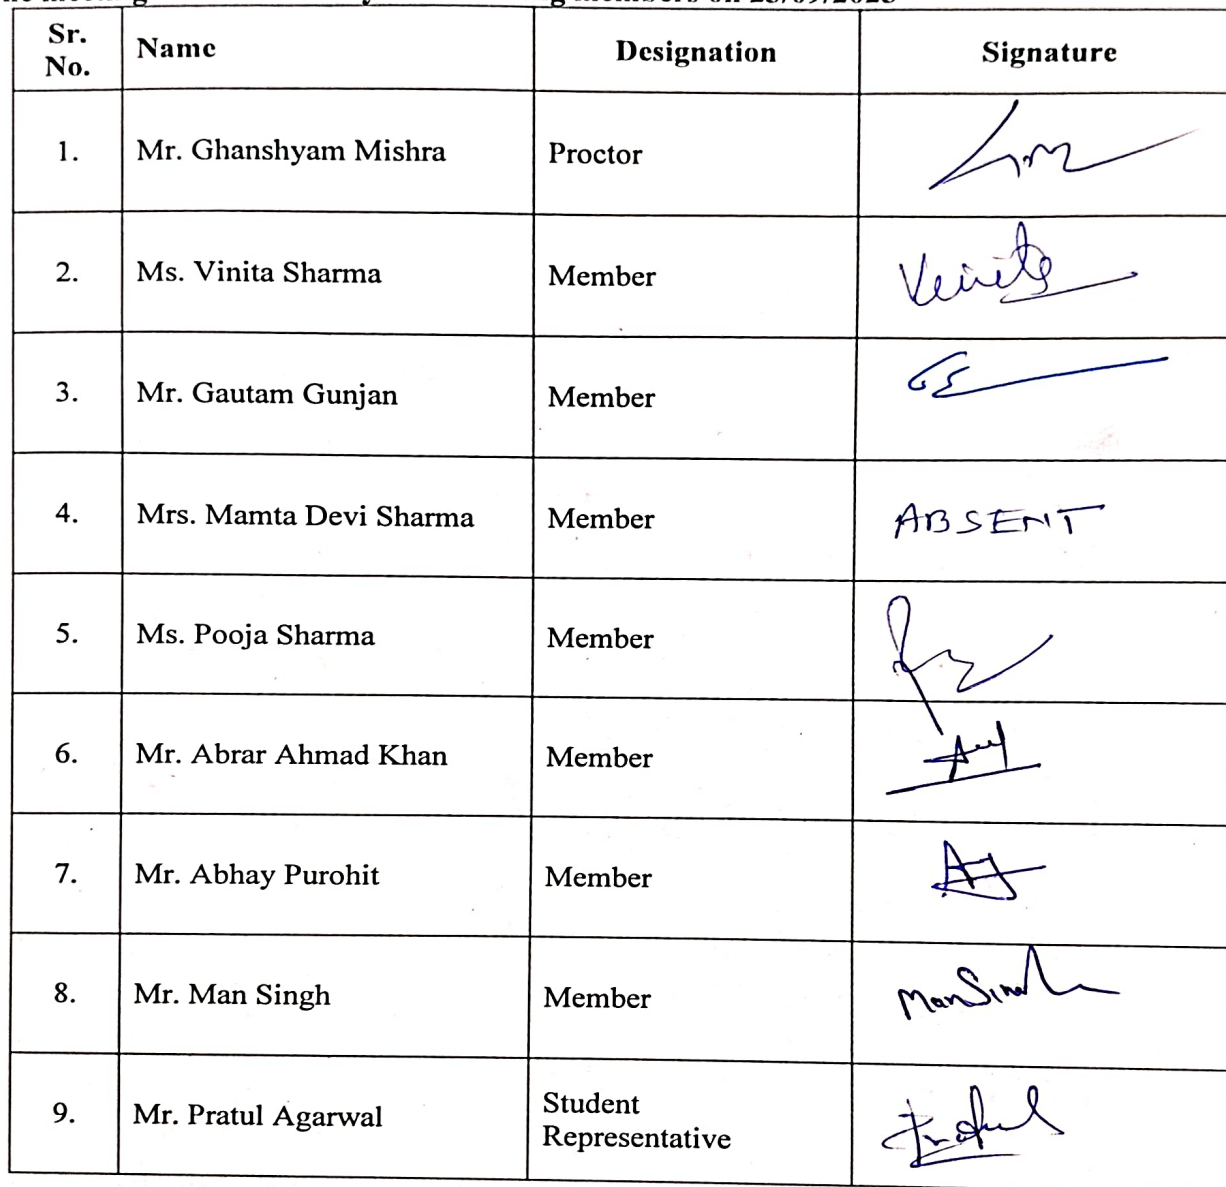 members on
Sr. No. Name Designation Signature
1. Mr. Ghanshyam Mishra Proctor
2. Ms. Vinita Sharma Member Vinita
3. Mr. Gautam Gunjan Member
4. Mrs. Mamta Devi Sharma Member ABSENT
5. Ms. Pooja Sharma Member
6. Mr. Abrar Ahmad Khan Member
7. Mr. Abhay Purohit Member
8. Mr. Man Singh Member Man Singh
9. Mr. Pratul Agarwal Student
Representative Pratul